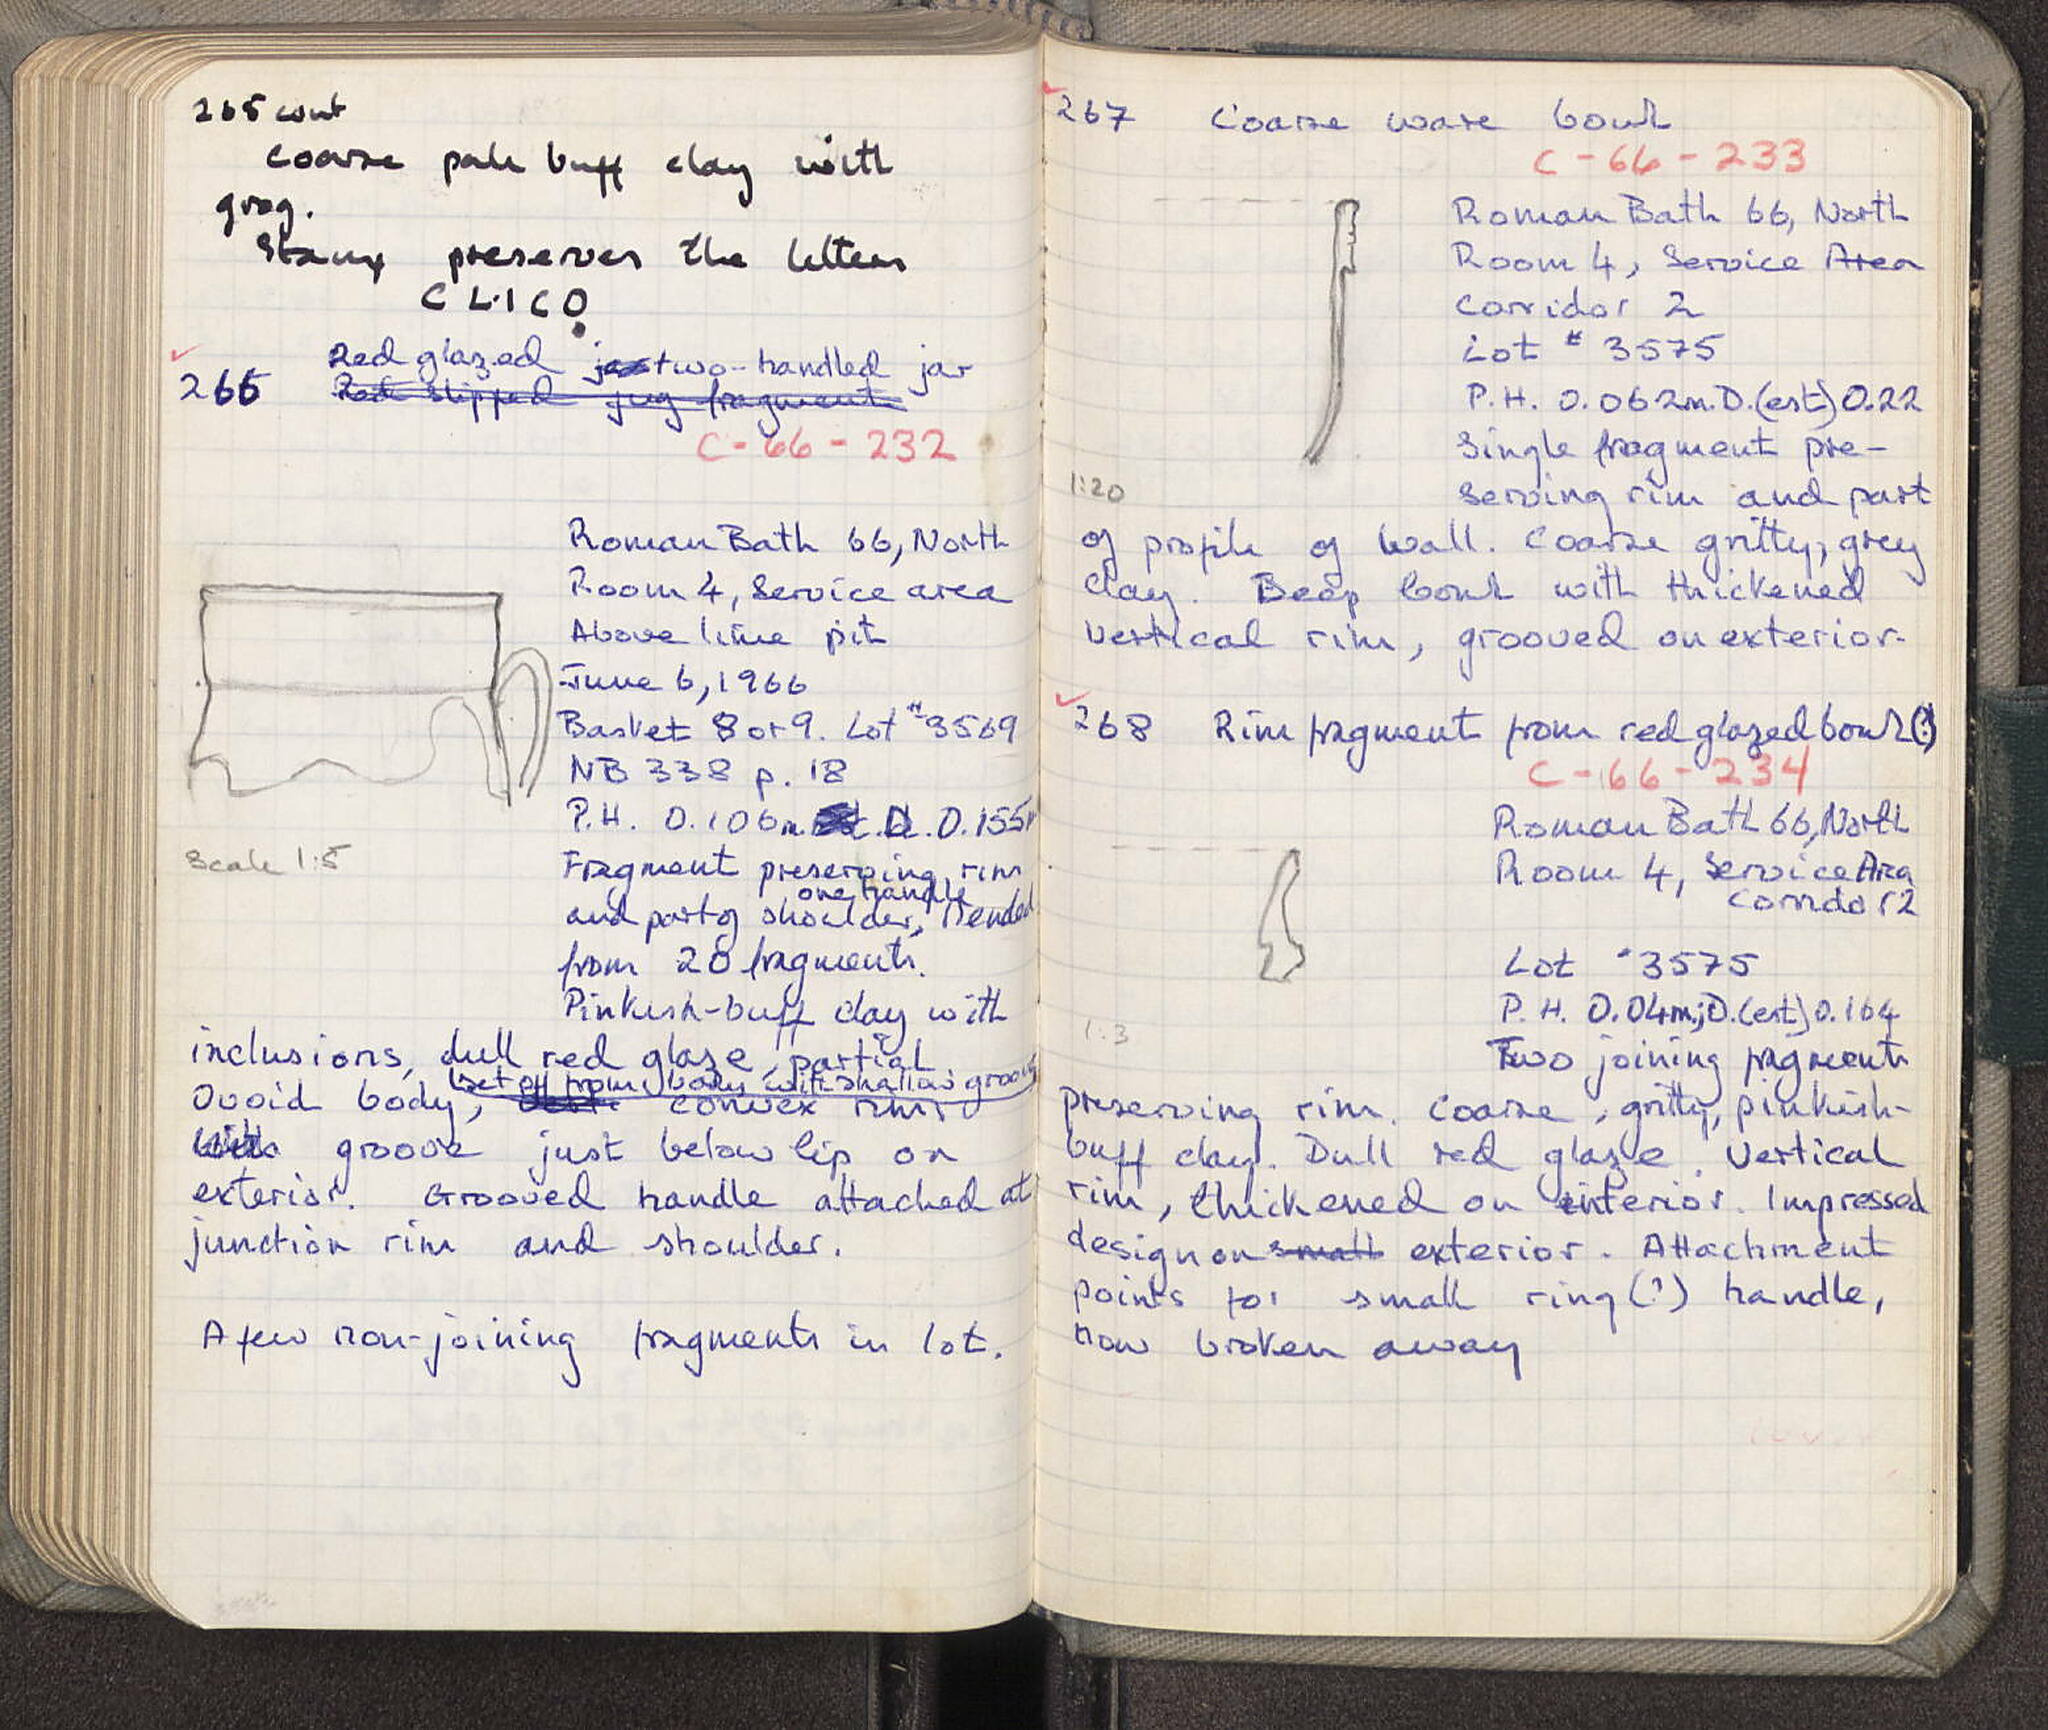 265 cont
Coarse pale buff clay with
grog.
Stamp preserves the letters
C L·I C O
Red glazed jar two-handled jar
266 Red slipped jug fragment
C-66-232
Roman Bath 66, North
Room 4, Service area
Above lime pit
June 6, 1966
Basket 8 or 9. Lot # 3569
NB 338 p. 18
P.H. 0.106m. D. 0.155m
Scale 1:5
Fragment preserving rim
one handle
and part of shoulder, Mended
from 20 fragments.
Pinkish-buff clay with
inclusions, dull red glaze, partial.
(set off from body with shallow groove)
Ovoid body, convex rim,
with groove just below lip on
exterior. Grooved handle attached at
junction rim and shoulder.
A few non-joining fragments in lot.
267 Coarse ware bowl
C-66-233
Roman Bath 66, North
Room 4, Service Area
Corridor 2
Lot # 3575
P.H. 0.062m. D.(est) 0.22
Single fragment pre-
1:20
serving rim and part
of profile of wall. Coarse gritty, grey
clay. Deep bowl with thickened
vertical rim, grooved on exterior.
268 Rim fragment from red glazed bowl(?)
C-66-234
Roman Bath 66, North
Room 4, Service Area
Corridor 2
Lot # 3575
P.H. 0.04m; D.(est) 0.164
1:3
Two joining fragments
preserving rim. Coarse, gritty, pinkish-
buff clay. Dull red glaze. Vertical
rim, thickened on interior. Impressed
design on small exterior. Attachment
points for small ring(?) handle,
now broken away